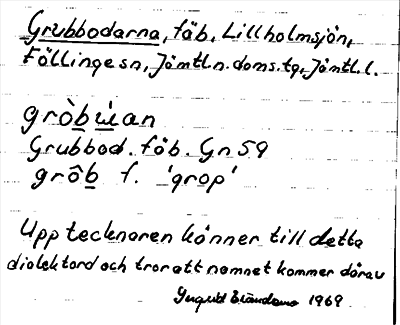 Grubbodarna, fäb, Lillholmsjön,
Föllinge sn, Jämtl. n. doms. tg, Jämtl. l.
gròbẁan
Grubbod. fäb. Gn 59
grôb f. 'grop'
Upptecknaren känner till detta
dialektord och tror att namnet kommer därav
Ingrid 1969